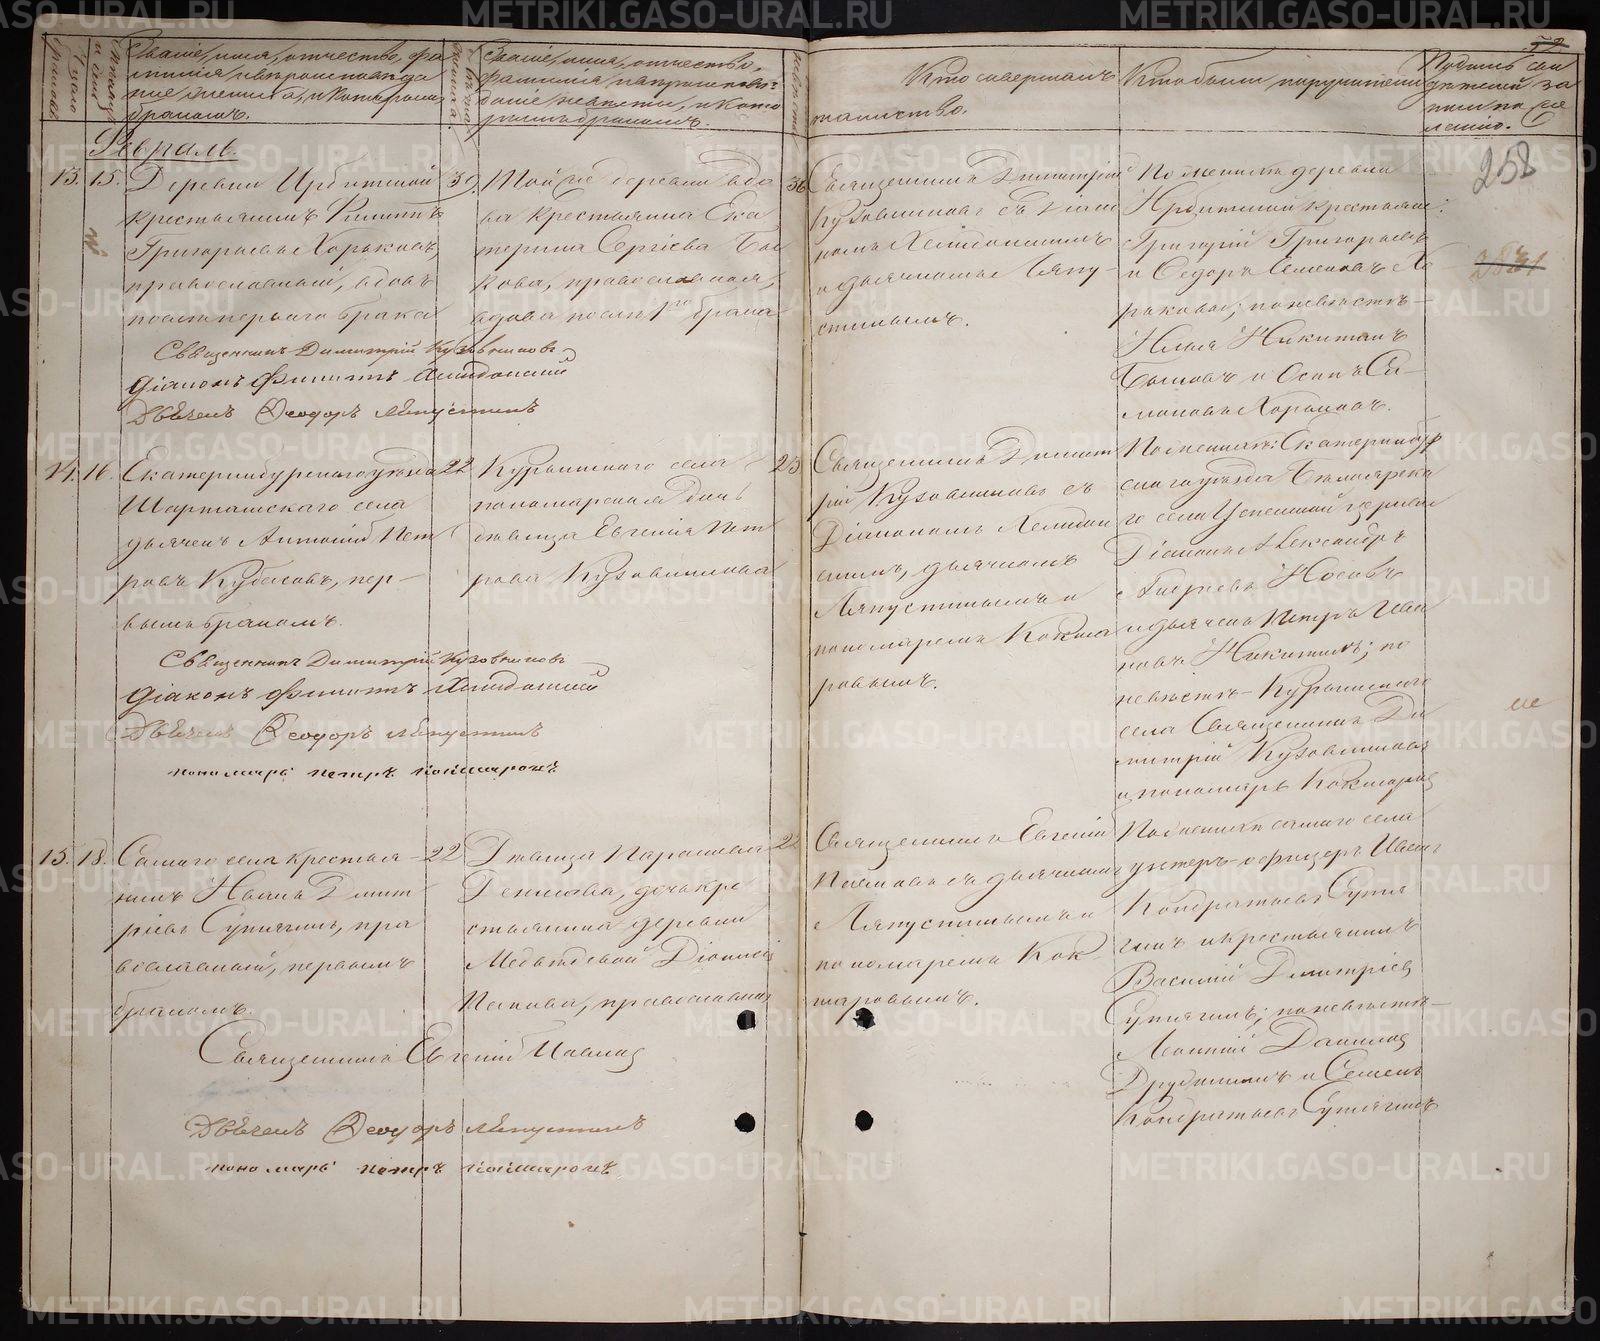 Званіе, имя, отчество, фа
милія и
браком.
Званіе, имя, отчество,
Кто совершалъ
таинство.
Кто были поручители
Февраль.
13. 15. Деревни Ирбитской
крестьянинъ Филиппъ
Григорьевъ Хорьковъ,
православный, вдовъ
послѣ перваго брака
39
Той же деревни вдо
ва крестьянина Ека
терина Сергіева Бы
кова, православная,
вдова послѣ 1го брака
36
Священникъ Димитрій
Кузовниковъ съ Діако
номъ Хелидонскимъ
и дьячкомъ Ляпу-
стинымъ.
По женихѣ деревни
Ирбитской крестьяне:
Григорій Григорьевъ
и Ѳедоръ Семеновъ Хо
рьковы; по невѣстѣ-
Илья Никитинъ
Быковъ и Осипъ Си-
моновъ Хорьковъ.
258
Священникъ Димитрій Кузовниковъ
Діаконъ Филиппъ Хелидонскій
Дьячекъ Ѳеодоръ Ляпустинъ
14. 16. Екатеринбургскаго уѣзда
Шарташскаго села
дьячекъ Антоній Пет
ровъ Кубасовъ, пер-
вымъ бракомъ.
22
Курьинскаго села
пономарская дочь
дѣвица Евгенія Пет
рова Кузовникова
23
Священникъ Димит
рій Кузовниковъ съ
Діакономъ Хелидон
скимъ, дьячкомъ
Ляпустинымъ и
пономаремъ Кокша
ровымъ.
По женихѣ: Екатеринбур
скаго уѣзда
го села Успенской церкви
Діаконъ Александръ
Носовъ
и дьячекъ Петръ Ива
новъ Никитинъ; по
невѣстѣ - Курьинскаго
села Священникъ Ди
митрій Кузовниковъ
и пономарь Кокшаровъ
Священникъ Димитрій Кузовниковъ
Діаконъ Филиппъ Хелидонскій
Дьячекъ Ѳеодоръ Ляпустинъ
пономарь петръ кокшаровъ
15. 18. Самаго села крестья-
нинъ Иванъ Димит
ріевъ Сутягинъ, пра
вославный, первымъ
бракомъ.
22
Дѣвица Параскева
Денисова, дочь кре
стьянина деревни
Медвѣдевой Діонисія
Попова, православная
22
Священникъ Евгеній
Поповъ съ дьячкомъ
Ляпустинымъ и
пономаремъ Кок-
шаровымъ.
По женихѣ самаго села
унтеръ-офицеръ Иванъ
Кондратьевъ Сутя
гинъ и крестьянинъ
Василій Димитріевъ
Сутягинъ; по невѣстѣ-
Леонтій Даниловъ
и Семенъ
Кондратьевъ Сутягинъ
Священникъ Евгеній Поповъ
Дьячекъ Ѳеодоръ Ляпустинъ
пономарь петръ кокшаровъ
METRIKI.GASO-URAL.RU